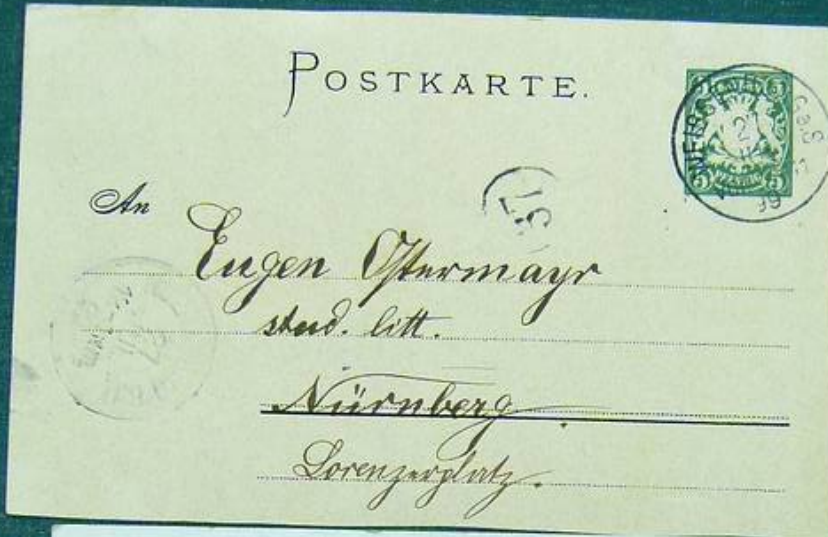 POSTKARTE.
An
Eugen Ostermayr
stud. litt.
Nürnberg
Lorenzerplatz.